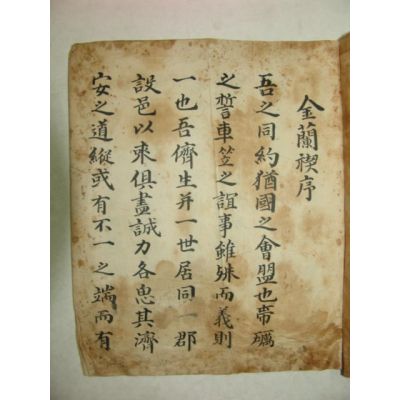 金蘭禊序
吾之同約猶國之會盟也帶礪
之誓車笠之誼事雖殊而義則
一也吾儕生并一世居同一郡
設邑以來俱盡誠力各思其濟
安之道縱或有不一之端而有